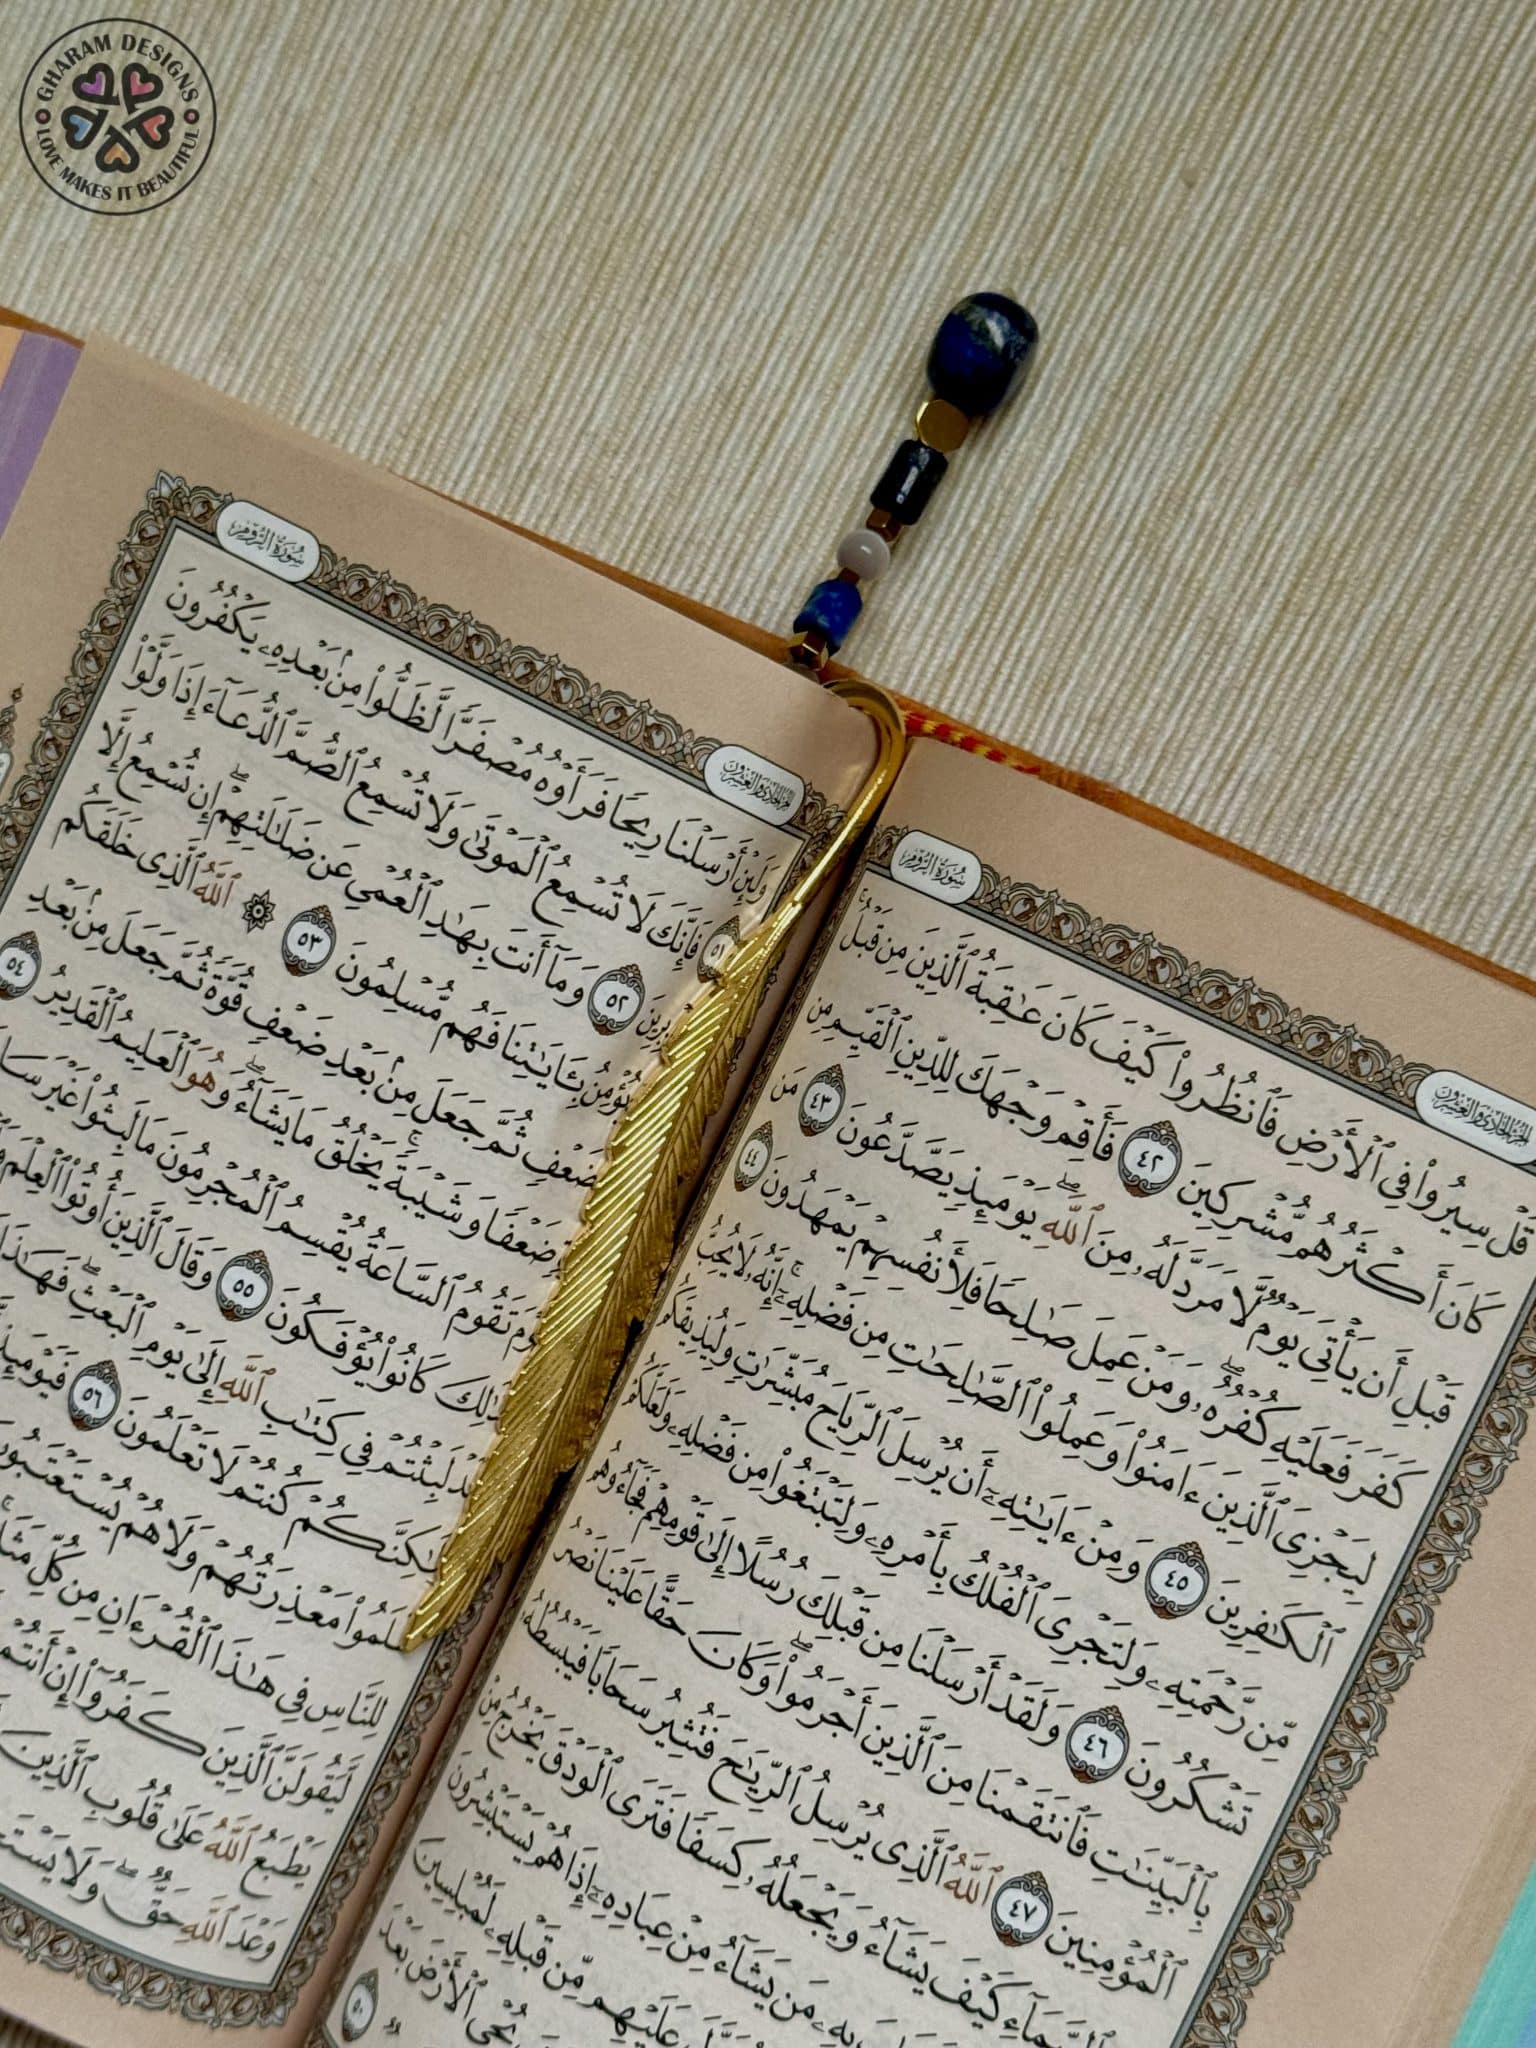 GHARAM DESIGNS
LOVE MAKES IT BEAUTIFUL
الجزء الحادي والعشرون
سُورَةُ الرُّومِ
قُلۡ سِيرُواْ فِي ٱلۡأَرۡضِ فَٱنظُرُواْ كَيۡفَ كَانَ عَٰقِبَةُ ٱلَّذِينَ مِن قَبۡلُۚ
كَانَ أَكۡثَرُهُم مُّشۡرِكِينَ ٤٢ فَأَقِمۡ وَجۡهَكَ لِلدِّينِ ٱلۡقَيِّمِ مِن
قَبۡلِ أَن يَأۡتِيَ يَوۡمٞ لَّا مَرَدَّ لَهُۥ مِنَ ٱللَّهِۖ يَوۡمَئِذٖ يَصَّدَّعُونَ ٤٣ مَن
كَفَرَ فَعَلَيۡهِ كُفۡرُهُۥۖ وَمَنۡ عَمِلَ صَٰلِحٗا فَلِأَنفُسِهِمۡ يَمۡهَدُونَ ٤٤
لِيَجۡزِيَ ٱلَّذِينَ ءَامَنُواْ وَعَمِلُواْ ٱلصَّٰلِحَٰتِ مِن فَضۡلِهِۦٓۚ إِنَّهُۥ لَا يُحِبُّ
ٱلۡكَٰفِرِينَ ٤٥ وَمِنۡ ءَايَٰتِهِۦٓ أَن يُرۡسِلَ ٱلرِّيَاحَ مُبَشِّرَٰتٖ وَلِيُذِيقَكُم
مِّن رَّحۡمَتِهِۦ وَلِتَجۡرِيَ ٱلۡفُلۡكُ بِأَمۡرِهِۦ وَلِتَبۡتَغُواْ مِن فَضۡلِهِۦ وَلَعَلَّكُمۡ
تَشۡكُرُونَ ٤٦ وَلَقَدۡ أَرۡسَلۡنَا مِن قَبۡلِكَ رُسُلًا إِلَىٰ قَوۡمِهِمۡ فَجَآءُوهُم
بِٱلۡبَيِّنَٰتِ فَٱنتَقَمۡنَا مِنَ ٱلَّذِينَ أَجۡرَمُواْۖ وَكَانَ حَقًّا عَلَيۡنَا نَصۡرُ
ٱلۡمُؤۡمِنِينَ ٤٧ ٱللَّهُ ٱلَّذِي يُرۡسِلُ ٱلرِّيَٰحَ فَتُثِيرُ سَحَابٗا فَيَبۡسُطُهُۥ
ٱلسَّمَآءِ كَيۡفَ يَشَآءُ وَيَجۡعَلُهُۥ كِسَفٗا فَتَرَى ٱلۡوَدۡقَ يَخۡرُجُ مِنۡ
بِهِۦ مَن يَشَآءُ مِنۡ عِبَادِهِۦٓ إِذَا هُمۡ يَسۡتَبۡشِرُونَ
عَلَيۡهِم مِّن قَبۡلِهِۦ لَمُبۡلِسِينَ
يُحۡيِ ٱلۡأَرۡضَ بَعۡدَ
٥٠
الجزء الحادي والعشرون
سُورَةُ الرُّومِ
وَلَئِنۡ أَرۡسَلۡنَا رِيحٗا فَرَأَوۡهُ مُصۡفَرّٗا لَّظَلُّواْ مِنۢ بَعۡدِهِۦ يَكۡفُرُونَ
٥١ فَإِنَّكَ لَا تُسۡمِعُ ٱلۡمَوۡتَىٰ وَلَا تُسۡمِعُ ٱلصُّمَّ ٱلدُّعَآءَ إِذَا وَلَّوۡاْ
٥٢ وَمَآ أَنتَ بِهَٰدِ ٱلۡعُمۡيِ عَن ضَلَٰلَتِهِمۡۖ إِن تُسۡمِعُ إِلَّا
يُؤۡمِنُ بِـَٔايَٰتِنَا فَهُم مُّسۡلِمُونَ ٥٣ ۞ ٱللَّهُ ٱلَّذِي خَلَقَكُم
ضَعۡفٖ ثُمَّ جَعَلَ مِنۢ بَعۡدِ ضَعۡفٖ قُوَّةٗ ثُمَّ جَعَلَ مِنۢ بَعۡدِ
ضَعۡفٗا وَشَيۡبَةٗۚ يَخۡلُقُ مَا يَشَآءُۖ وَهُوَ ٱلۡعَلِيمُ ٱلۡقَدِيرُ ٥٤
تَقُومُ ٱلسَّاعَةُ يُقۡسِمُ ٱلۡمُجۡرِمُونَ مَا لَبِثُواْ غَيۡرَ
كَانُواْ يُؤۡفَكُونَ ٥٥ وَقَالَ ٱلَّذِينَ أُوتُواْ ٱلۡعِلۡمَ
لَبِثۡتُمۡ فِي كِتَٰبِ ٱللَّهِ إِلَىٰ يَوۡمِ ٱلۡبَعۡثِۖ فَهَٰذَا
كُنتُمۡ لَا تَعۡلَمُونَ ٥٦
مَعۡذِرَتُهُمۡ وَلَا هُمۡ
لِلنَّاسِ فِي هَٰذَا ٱلۡقُرۡءَانِ مِن كُلِّ
لَّيَقُولَنَّ ٱلَّذِينَ كَفَرُوٓاْ إِنۡ أَنتُمۡ
يَطۡبَعُ ٱللَّهُ عَلَىٰ قُلُوبِ ٱلَّذِينَ
وَعۡدَ ٱللَّهِ حَقّٞۖ وَلَا